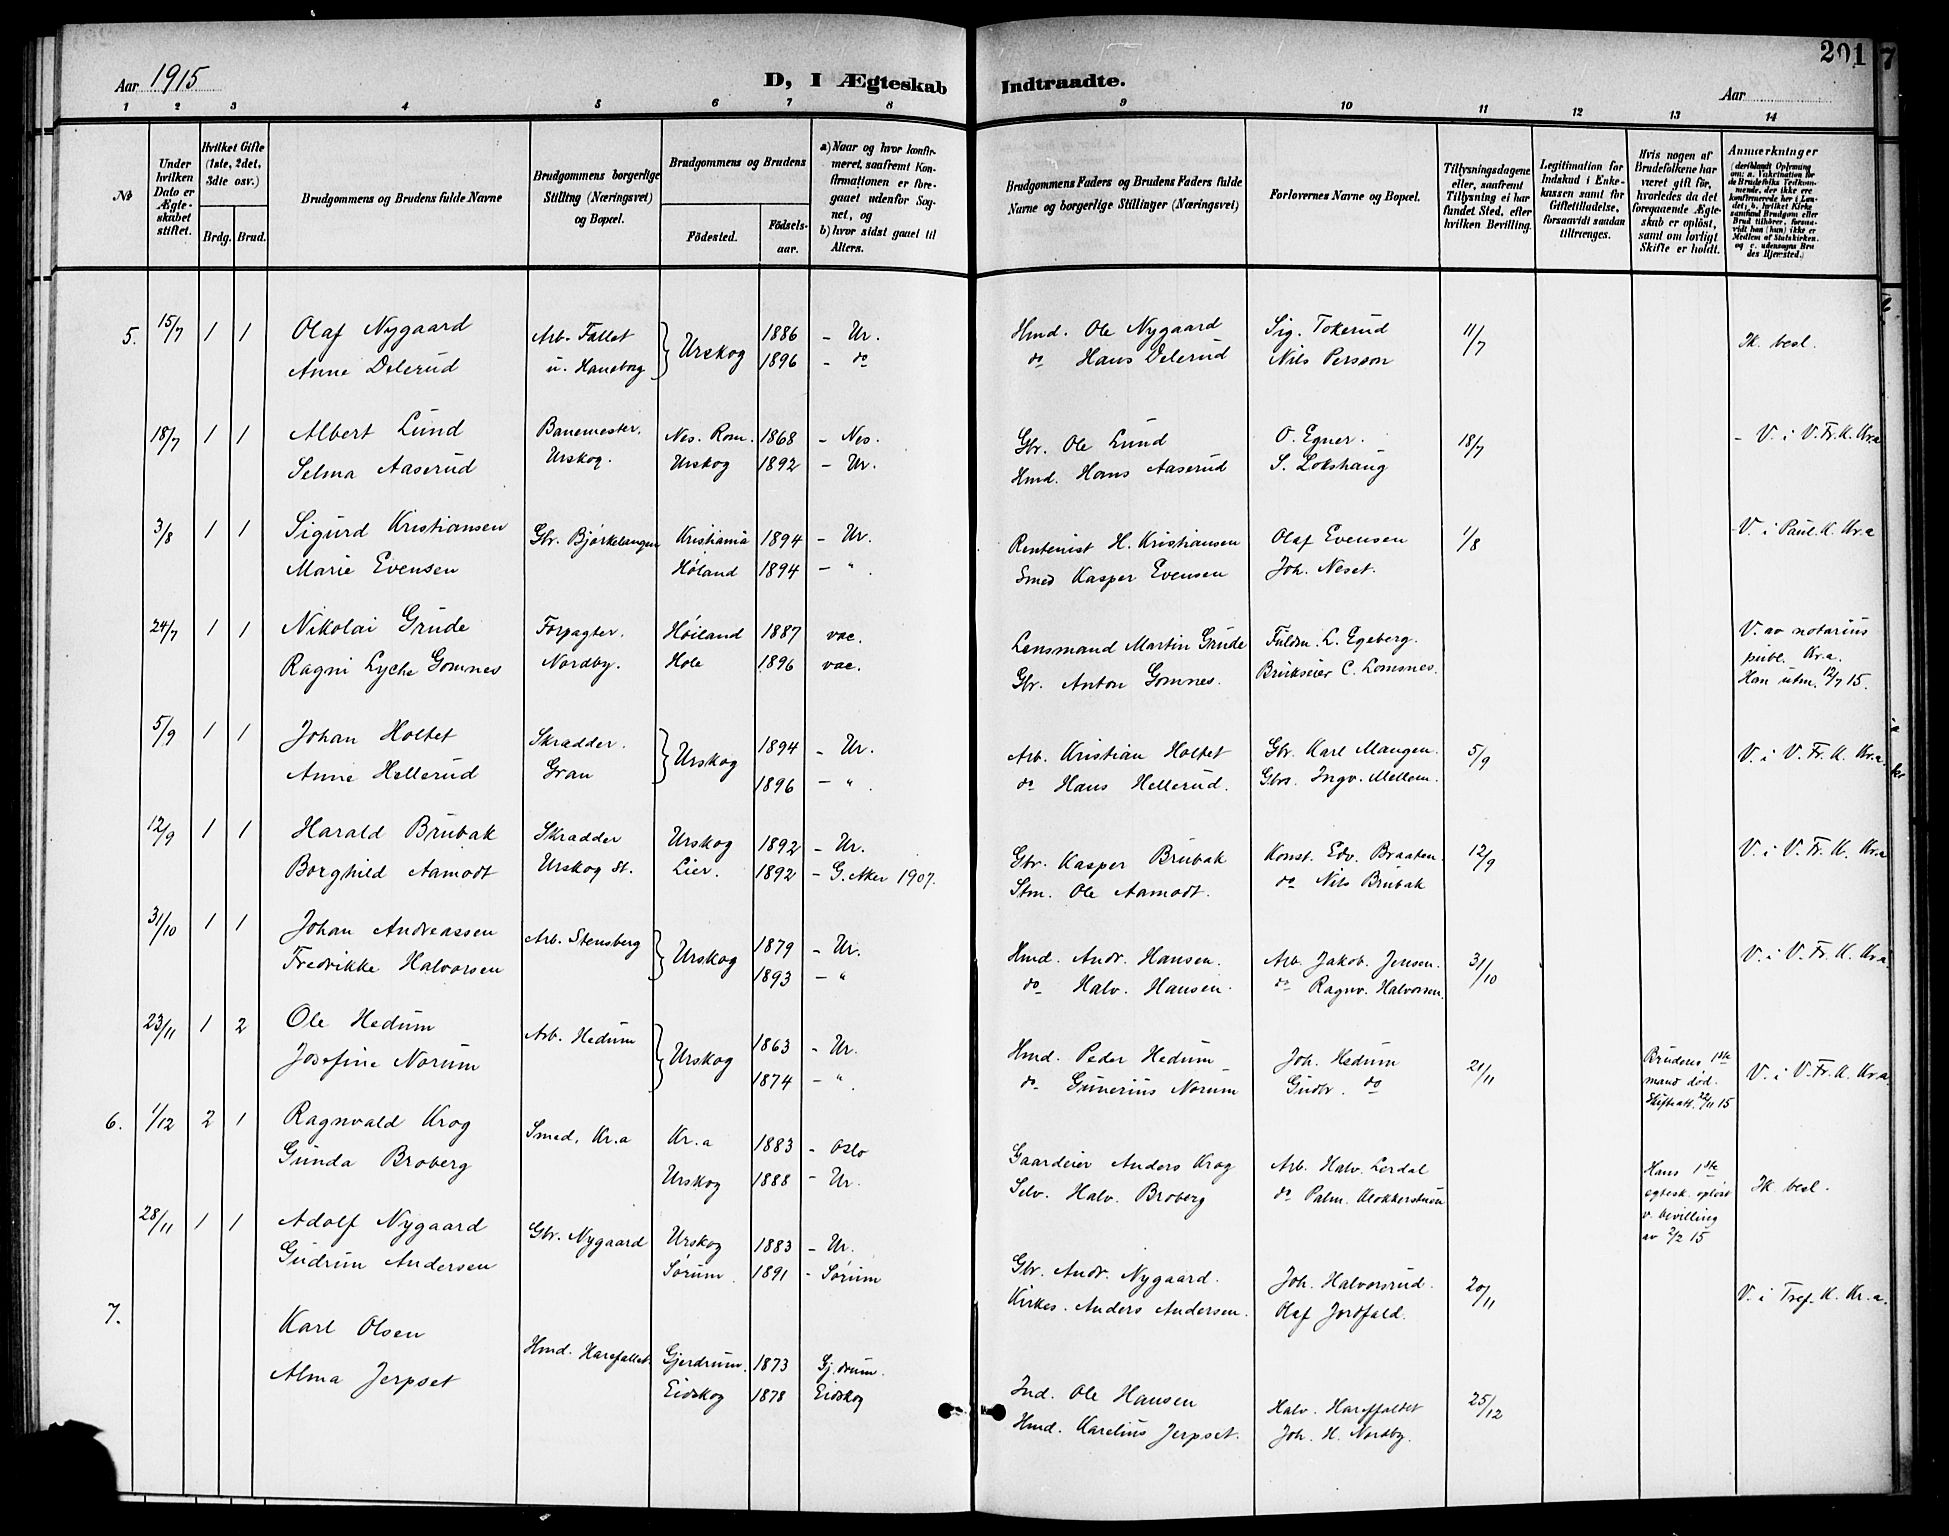 Aar 1915
D, I Ægteskab Indtraadte.
201
Aar
1 2 3 4 5 6 7 8 9 10 11 12 13 14
№
Under hvilken Dato er Ægteskabet stiftet.
Hvilket Gifte (1ste, 2det, 3die osv.)
Brdg. Brud.
Brudgommens og Brudens fulde Navne
Brudgommens borgerlige Stilling (Næringsvei) og Bopæl.
Brudgommens og Brudens
Födested. Födselsaar.
a) Naar og hvor konfirmeret, saafremt Konfirmationen er foregaaet udenfor Sognet, og
b) hvor sidst gaaet til Alters.
Brudgommens Faders og Brudens Faders fulde Navne og borgerlige Stillinger (Næringsvei)
Forlovernes Navne og Bopæl.
Tillysningsdagene eller, saafremt Tillysning ei har fundet Sted, efter hvilken Bevilling.
Legitimation for Indskud i Enkekassen samt for Giftetilladelse, forsaavidt saadan tiltrænges.
Hvis nogen af Brudefolkene har været gift för, hvorledes da det foregaaende Ægteskab er oplöst, samt om lovligt Skifte er holdt.
Anmærkninger
5. 15/7 1 1 Olaf Nygaard Arb. Fallet Urskog 1886 - Ur. Hmd. Ole Nygaard Sig. Tokerud 11/7 Ik. besl.
Anne Delerud u. Haneborg 1896 - do do Hans Delerud Nils Persson
18/7 1 1 Albert Lund Banemester. Nes. Rom. 1868 - Nes. Gbr. Ole Lund O. Egner. 18/7 - V. i V. Fr. K. Kr.a
Selma Aaserud Urskog. Urskog 1892 - Ur. Hmd. Hans Aaserud S. Lokshaug
3/8 1 1 Sigurd Kristiansen Gbr. Bjørkelangen Kristiania 1894 - Ur. Rentenist H. Kristiansen Olaf Evensen 1/8 - V. i Paul. K. Kr.a
Marie Evensen Høland 1894 - " . Smed Kasper Evensen Joh. Neset.
24/7 1 1 Nikolai Grude Forpagter. Høiland 1887 vac. Lensmand Martin Grude Fuldm. L. Egeberg. V. av notarius
Ragni Lyche Gomnes Nordby. Hole 1896 vac. Gbr. Anton Gomnes. Brukseier C. Lomsnes. publ. Kr.a.
Han utm. 12/7 15.
5/9 1 1 Johan Holtet Skrædder. Urskog 1894 - Ur. Arb. Kristian Holtet Gbr. Karl Mangen. 5/9 V. i V. Fr. K. Kr.a.
Anne Hellerud Gran 1896 - " . do Hans Hellerud. Gbrs. Ingv. Mellem.
12/9 1 1 Harald Brubak Skrædder Urskog 1892 - Ur. Gbr. Kasper Brubak Konst. Edv. Braaten. 12/9 V. i V. Fr. K. Kr.a
Borghild Aamodt Urskog St. Lier. 1892 - G. Aker 1907. Stm. Ole Aamodt. do Nils Brubak
31/10 1 1 Johan Andreassen Arb. Stensberg Urskog 1879 - Ur. Hmd. Andr. Hansen. Arb. Jakob. Jensen. 31/10 V. i V. Fr. K. Kr.a.
Fredrikke Halvorsen 1893 - " do Halv. Hansen. do Ragnv. Halvorsen.
23/11 1 2 Ole Hedum Arb. Hedum Urskog 1863 - Ur. Hmd. Peder Hedum Joh. Hedum 21/11 Brudens 1ste V. i V. Fr. K. Kr.a.
Josefine Norum 1874 - " . do Gunerius Norum Gudbr. do mand død.
Skifteatt. 22/11 15
6. 1/12 2 1 Ragnvald Krog Smed, Kr.a Kr.a 1883 - Oslo Gaardeier Anders Krog Arb. Halv. Lerdal Hans 1ste Ik. besl.
Gunda Broberg Urskog 1888 - Ur. Selv. Halv. Broberg do Palm. Klokkerstuen egtesk. opløst
v. bevilling
av 2/2 15
28/11 1 1 Adolf Nygaard Gbr. Nygaard Urskog 1883 - Ur. Gbr. Andr. Nygaard. Joh. Halvorsrud. 20/11 V. i Tref. K. Kr.a.
Gudrun Andersen Sørum. 1891 - Sørum Kirkes. Anders Andersen. Olaf Jordfald.
7. Karl Olsen Hmd. Harefallet. Gjerdrum. 1873 Gj.drum. Ind. Ole Hansen Halv. Hareffaldet 25/12
Alma Jerpset Eidskog 1878 Eidskog Hmd. Karelius Jerpset. Joh. H. Nordby.